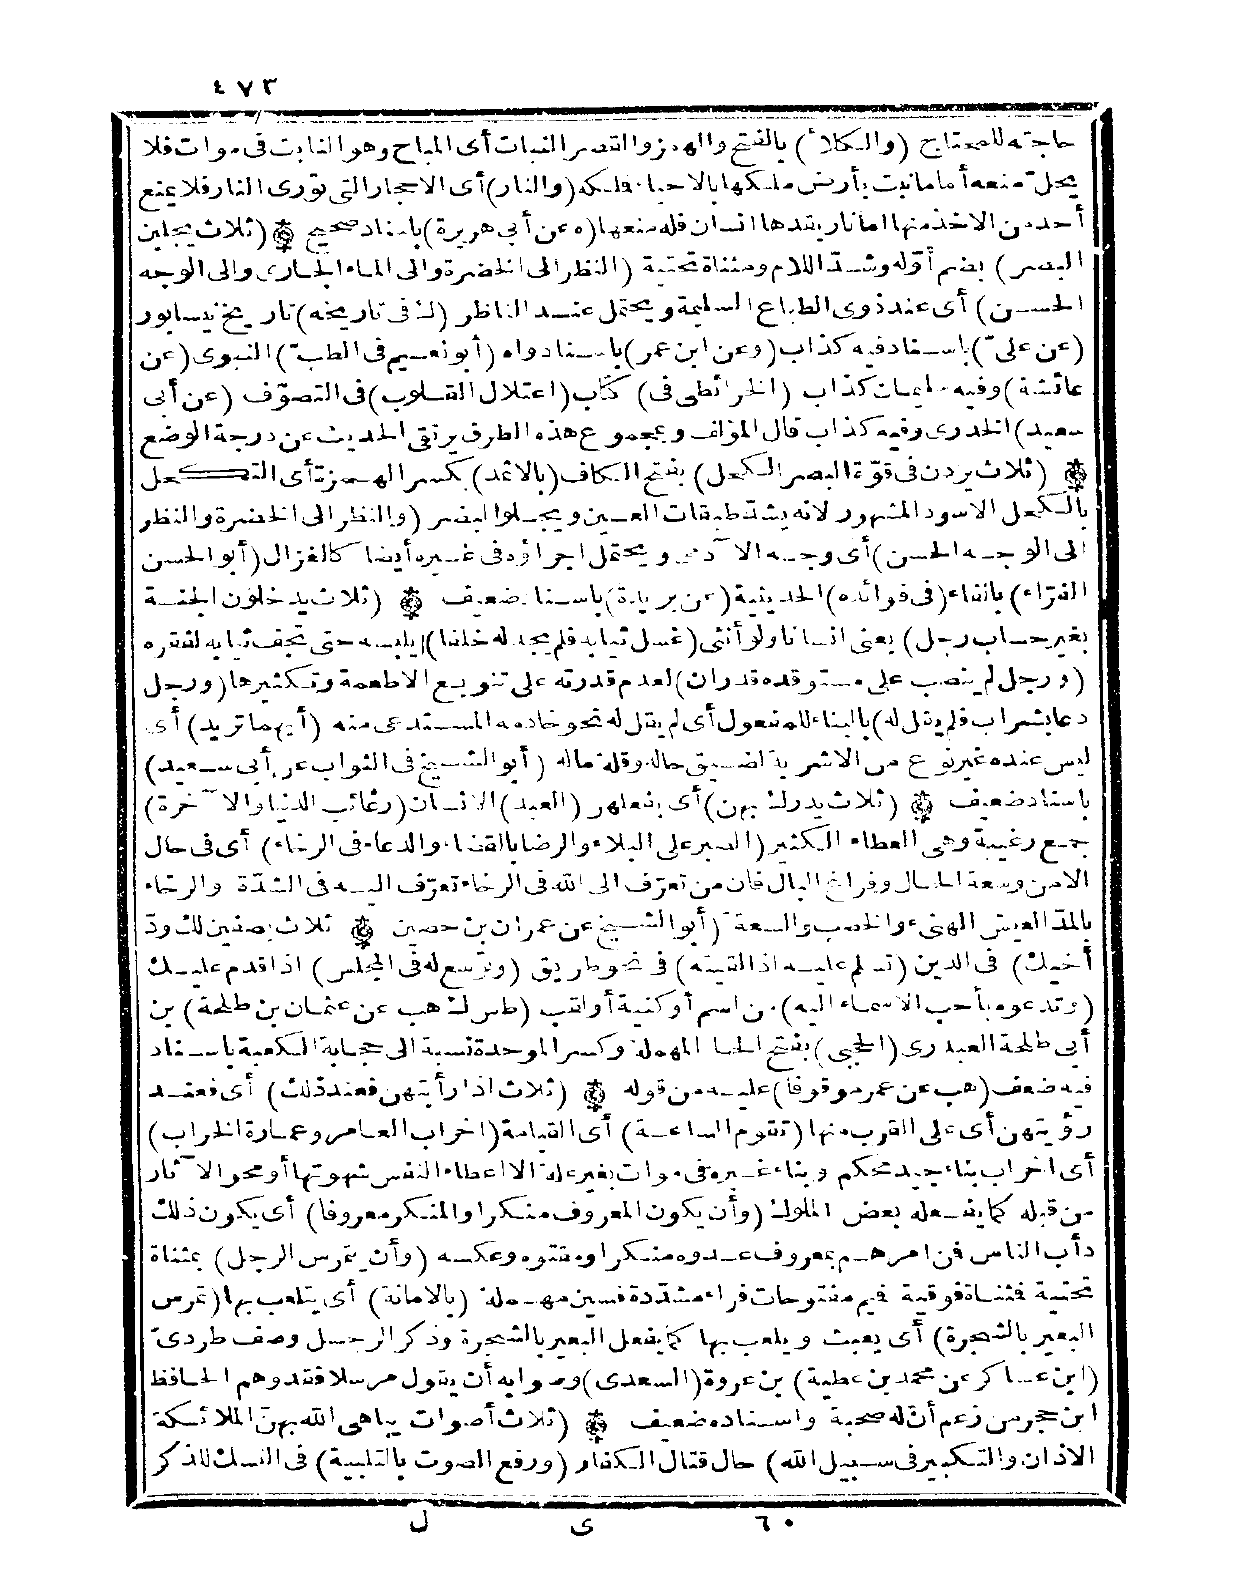 ٤٧٣
حاجته للمحتاج (والكلأ) بالفتح والهمز والقصر النبات أى المباح وهو النابت فى موات فلا
يحل منعه أما ما نبت بأرض ملكها بالاحياء فلكه (والنار) أى الاحجار التى تورى النار فلا يمنع
أحد من الاخذ منها اما نار يقدها انسان فله منعها (ه عن أبى هريرة) باسناد صحيح ۞ (ثلاث يجلين
البصر) بضم أوّله وشد اللام ومثناة تحتية (النظر الى الخضرة والى الماء الجارى والى الوجه
الحسن) أى عند ذوى الطباع السليمة ويحتمل عند الناظر (ك فى تاريخه) تاريخ نيسابور
(عن علىّ) باسناد فيه كذاب (وعن ابن عمر) باسناد واه (أبو نعيم فى الطبّ) النبوى (عن
عائشة) وفيه سليمان كذاب (الخرائطى فى) كتاب (اعتلال القلوب) فى التصوّف (عن أبى
سعيد) الخدرى وفيه كذاب قال المؤلف وبمجموع هذه الطرق يرتقى الحديث عن درجة الوضع
۞ (ثلاث يزدن فى قوّة البصر الكحل) بفتح الكاف (بالاثمد) بكسر الهمزة أى التكحل
بالكحل الاسود المشهور لانه يشد طبقات العين ويجلو البصر (والنظر الى الخضرة والنظر
الى الوجه الحسن) أى وجه الآدمى ويحتمل اجراؤه فى غيره أيضا كالغزال (أبو الحسن
الفرّاء) بالفاء (فى فوائده) الحديثية (عن بريدة) باسناد ضعيف ۞ (ثلاث يدخلون الجنة
بغير حساب رجل) يعنى انسانا ولو أنثى (غسل ثيابه فلم يجد له خلفا) يلبسه حتى تجف ثيابه لفقره
(ورجل لم ينصب على مستوقده قدران) لعدم قدرته على تنويع الاطعمة وتكثيرها (ورجل
دعا بشراب فلم يقل له) بالبناء للمفعول أى لم يقل له نحو خادمه المستدعى منه (أيهما تريد) أى
ليس عنده غير نوع من الاشربة لضيق حاله وقلة ماله (أبو الشيخ فى الثواب عن أبى سعيد)
باسناد ضعيف ۞ (ثلاث يدرك بهن) أى بفعلهن (العبد) الانسان (رغائب الدنيا والآخرة)
جمع رغيبة وهى العطاء الكثير (الصبر على البلاء والرضا بالقضاء والدعاء فى الرخاء) أى فى حال
الامن وسعة الحال وفراغ البال فان من تعرّف الى الله فى الرخاء تعرّف اليه فى الشدّة والرخاء
بالمدّ العيش الهنىء والخصب والسعة (أبو الشيخ عن عمران بن حصين ۞ ثلاث يصفين لك ودّ
أخيك) فى الدين (تسلم عليه اذا لقيته) فى نحو طريق (وتوسع له فى المجلس) اذا قدم عليك
(وتدعوه بأحب الاسماء اليه) من اسم أو كنية أو لقب (طس ك هب عن عثمان بن طلحة) بن
أبى طلحة العبدرى (الحجبى) بفتح الحاء المهملة وكسر الموحدة نسبة الى حجابة الكعبة باسناد
فيه ضعف (هب عن عمر موقوفا) عليه من قوله ۞ (ثلاث اذا رأيتهن فعند ذلك) أى فعند
رؤيتهن أى على القرب منها (تقوم الساعة) أى القيامة (اخراب العامر وعمارة الخراب)
أى اخراب بناء جيد محكم وبناء غيره فى موات بغير علة الا اعطاء النفس شهوتها أو محو الآثار
من قبله كما يفعله بعض الملوك (وأن يكون المعروف منكرا والمنكر معروفا) أى يكون ذلك
دأب الناس فمن أمرهم بمعروف عدوه منكرا ومقتوه وعكسه (وأن يتمرس الرجل) بمثناة
تحتية فمثناة فوقية فميم مفتوحات فراء مشددة فسين مهملة (بالامانة) أى يتلعب بها (تمرس
البعير بالشجرة) أى يعبث ويلعب بها كما يفعل البعير بالشجرة وذكر الرجل وصف طردىّ
(ابن عساكر عن محمد بن عطية) بن عروة (السعدى) وصوابه أن يقول مرسلا فقد وهم الحافظ
ابن حجر من زعم أن له صحبة واسناده ضعيف ۞ (ثلاث أصوات يباهى الله بهن الملائكة
الاذان والتكبير فى سبيل الله) حال قتال الكفار (ورفع الصوت بالتلبية) فى النسك للذكر
٦٠ ى ل